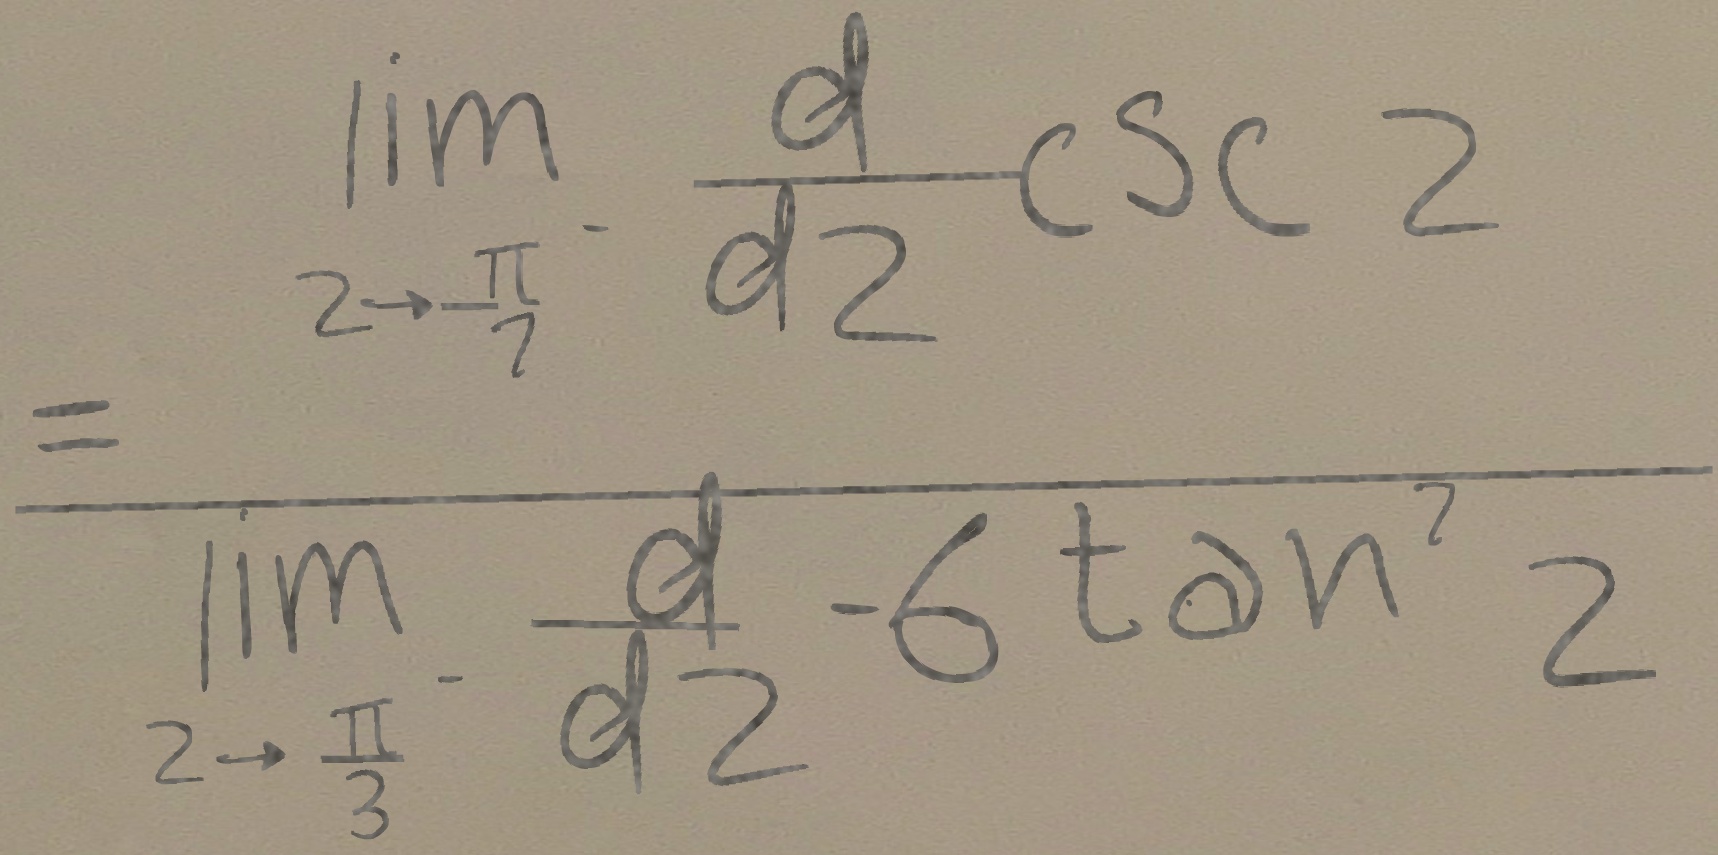 = \frac{\lim_{z \to \frac{\pi}{7}^-} \frac{d}{dz} \csc z}{\lim_{z \to \frac{\pi}{3}^-} \frac{d}{dz} -6 \tan^7 z}